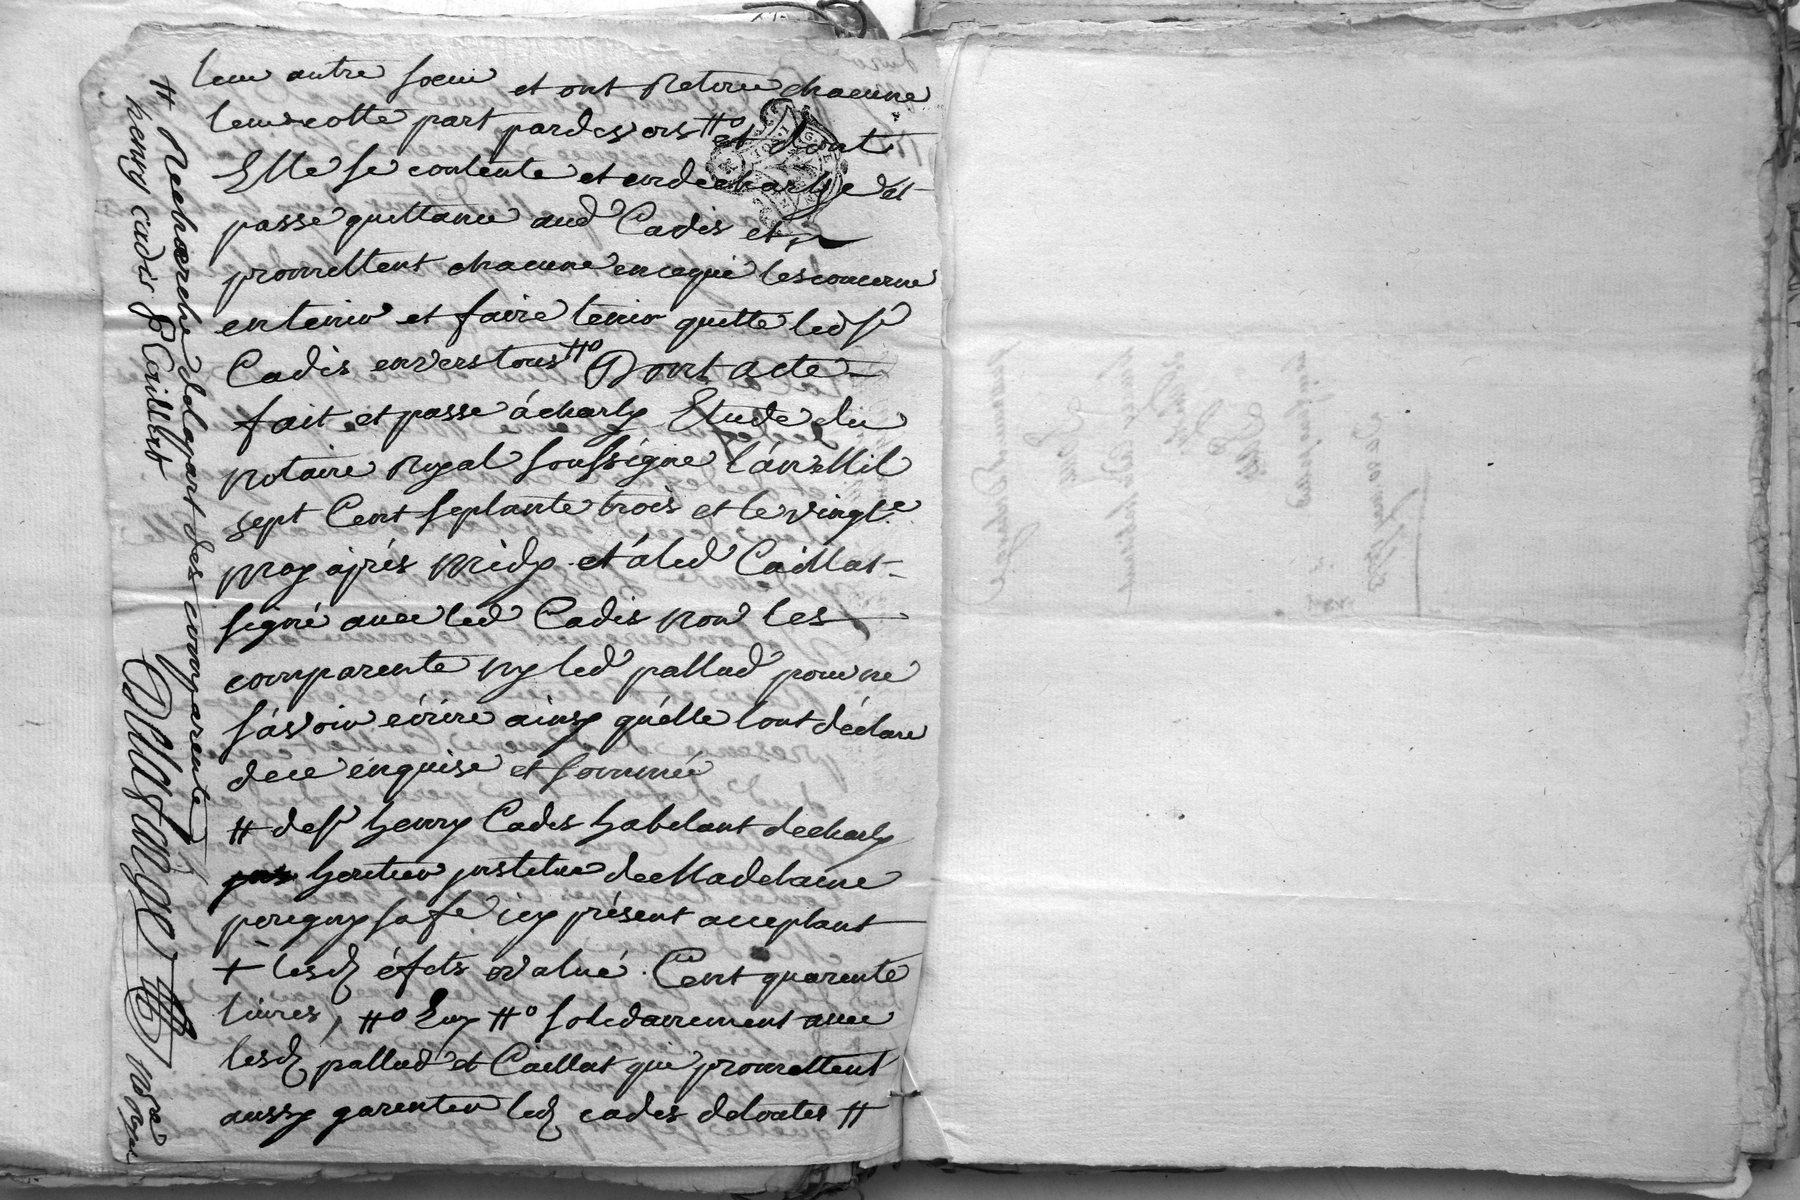 leur autre soeur et ont Retiré chacune
leur cotte part pardevers #o et dont
Elle se contente et en décharge et
passe quittance aud Cadis et
promettent chacune en ce qui les concerne
en tenir et faire tenir quitte led Sr
Cadis envers tous #o Dont acte
fait et passé à charly Etude du
notaire Royal soussigné l'án Mil
sept Cent septante trois et le vingt
may aprés Midy et a led Caillat
signé avec led Cadis non les
comparente ny led pallud pour ne
sávoir écrire ainsy qu'elle l'ont déclare
de ce enquise et sommée
# de Sr henry Cadis habitant de charly
heritier institue de Madelaine
peregny sa fe icy présent acceptant
+ lesd éfets évalué Cent quarente
livres, #o Luy #o solidairement avec
lesd pallud et Caillat qui promettent
aussy garentir led cadis de toutes #
# Recharche de la part des comparente
henry cadis P Caillat
Delastarge No.re Royal